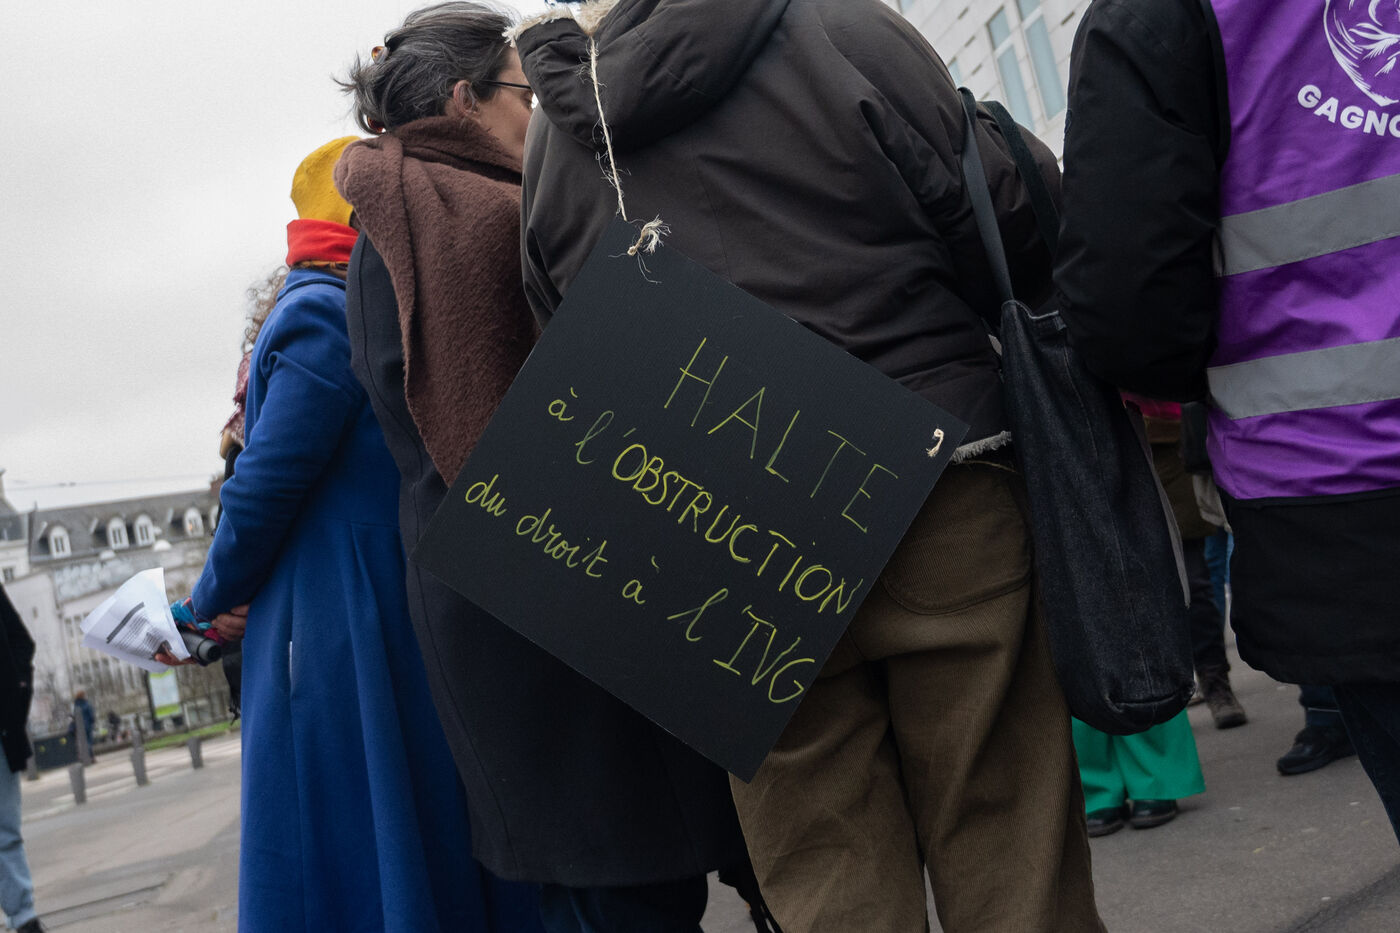 HALTE
à l'OBSTRUCTION
du droit à l'IVG
GAGNO